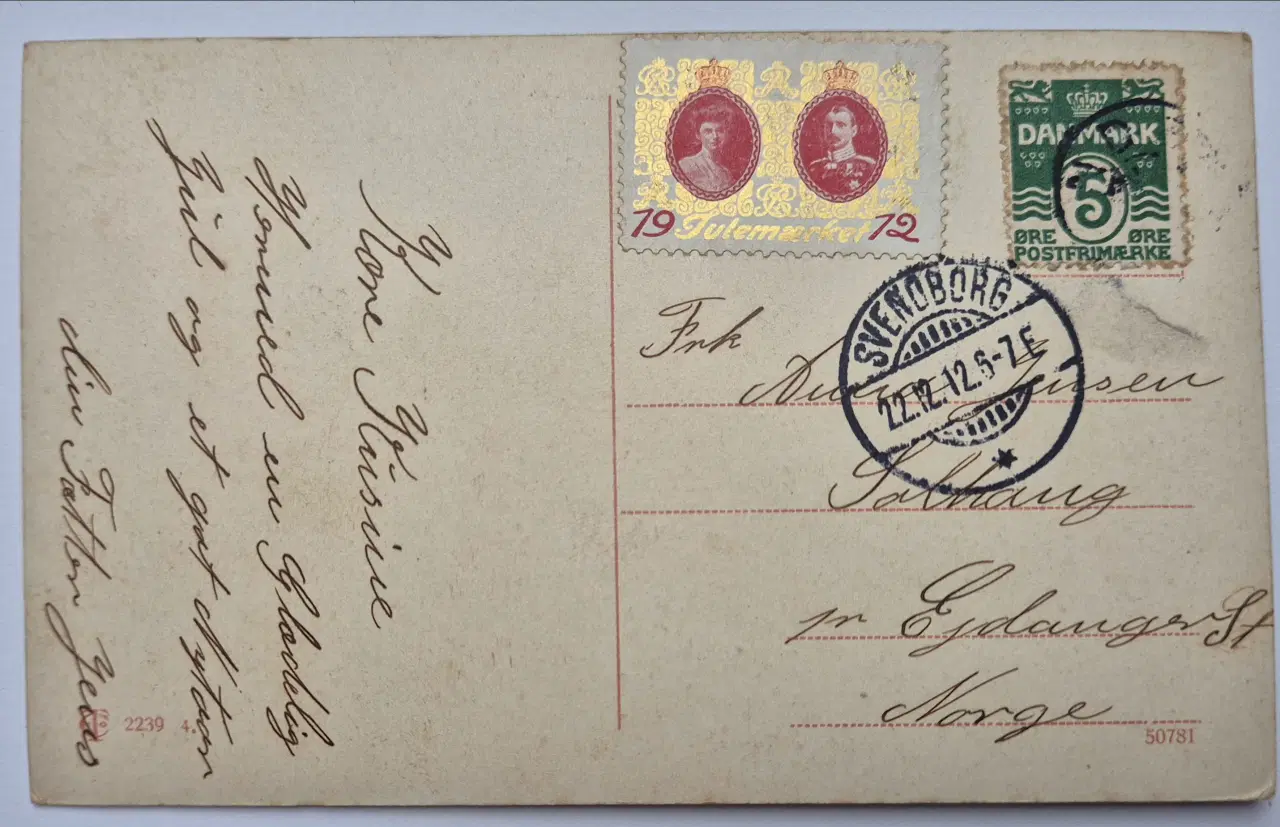 19 Julemærket 12
DANMARK
5
ØRE ØRE
POSTFRIMÆRKE
SVENDBORG
22.12.12.6-7E
Frk
Anna Jensen
Solhaug
pr Ejdanger St
Norge
50781
Kære Kusine
Hermed en Glædelig
Jul og et godt Nytaar
din Fætter Jens
2239 4.